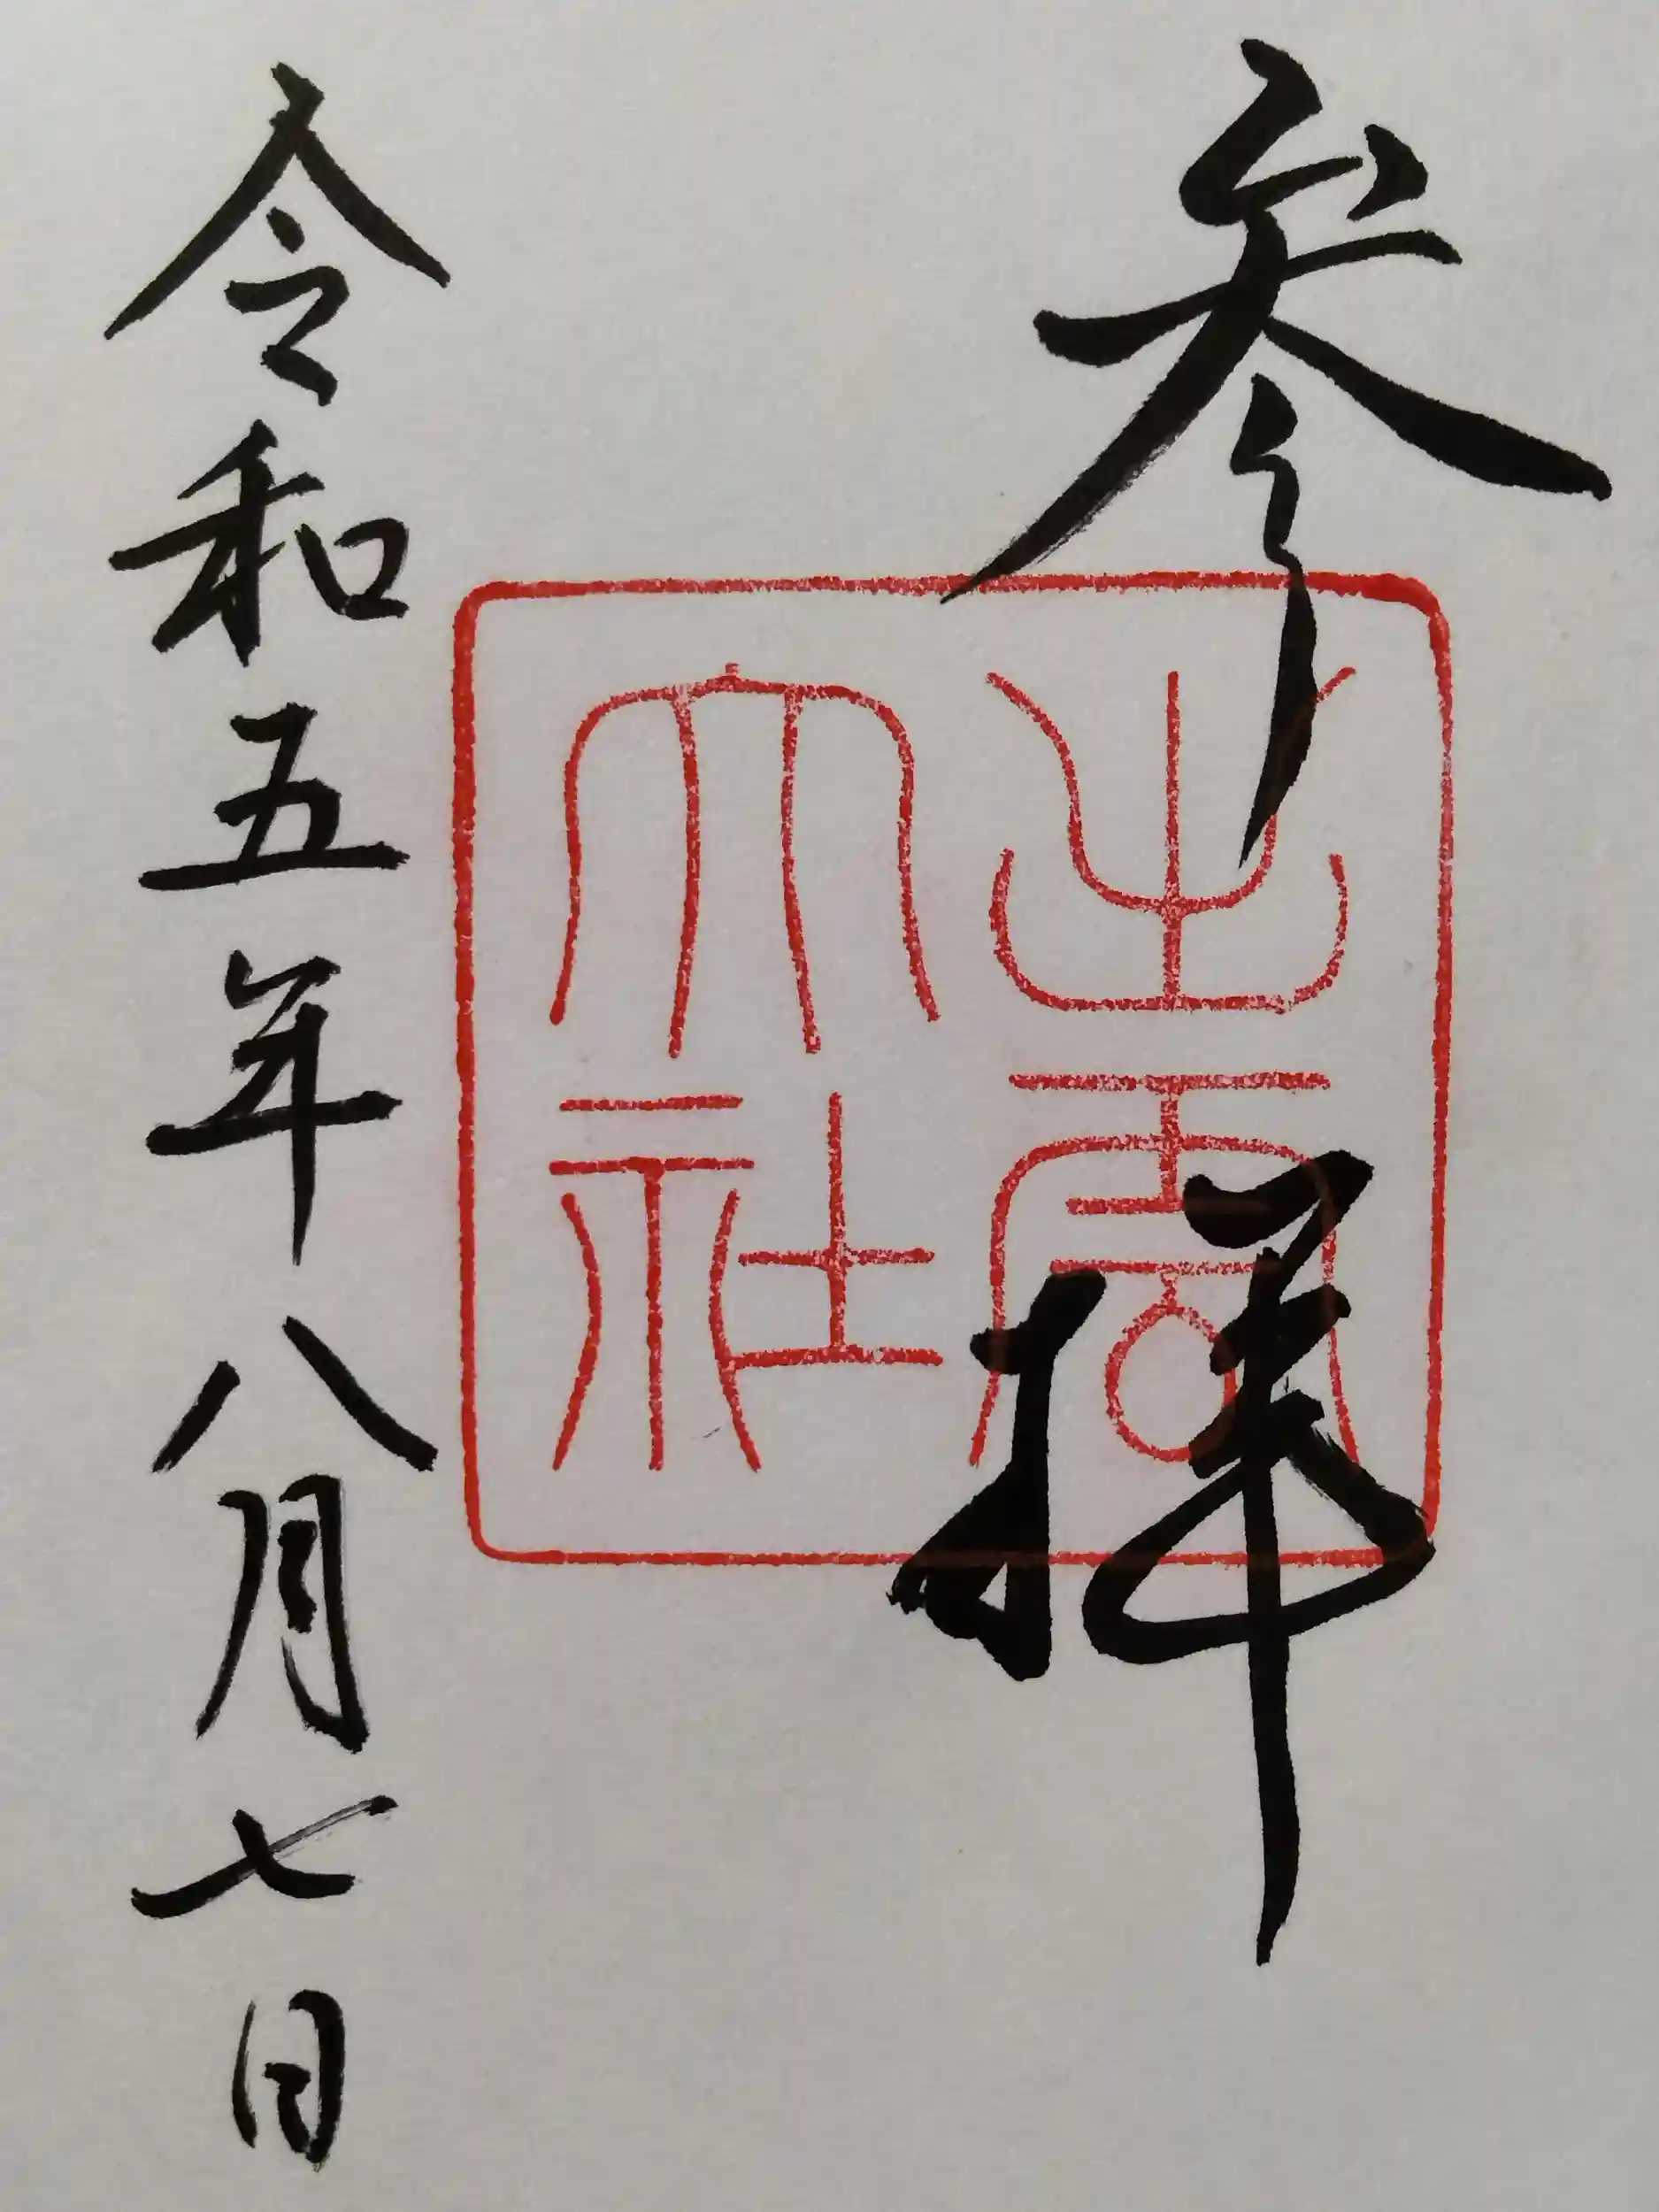 参拝
出雲
大社
令和五年八月七日